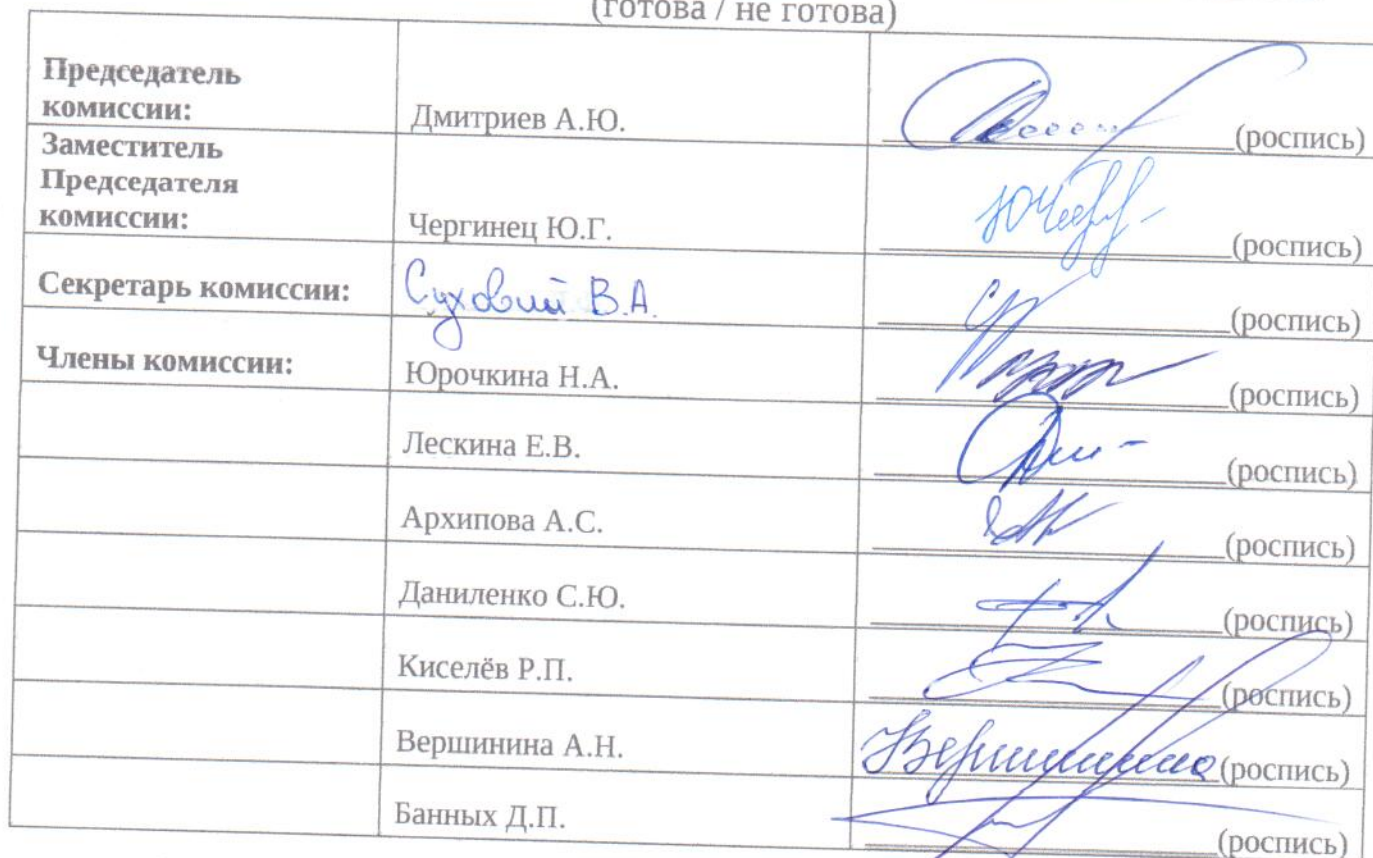 (готова / не готова)
Председатель
комиссии:
Дмитриев А.Ю.
(роспись)
Заместитель
Председателя
комиссии:
Чергинец Ю.Г.
(роспись)
Секретарь комиссии:
Суховий В.А.
(роспись)
Члены комиссии:
Юрочкина Н.А.
(роспись)
Лескина Е.В.
(роспись)
Архипова А.С.
(роспись)
Даниленко С.Ю.
(роспись)
Киселёв Р.П.
(роспись)
Вершинина А.Н.
(роспись)
Банных Д.П.
(роспись)